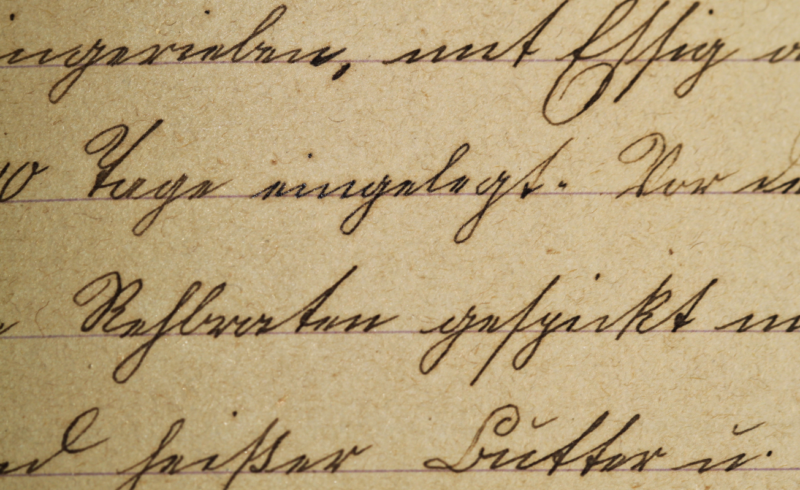 ingerieben, mit Essig
10 Tage eingelegt. Vor
Rehbraten gespickt
heißer Butter u.